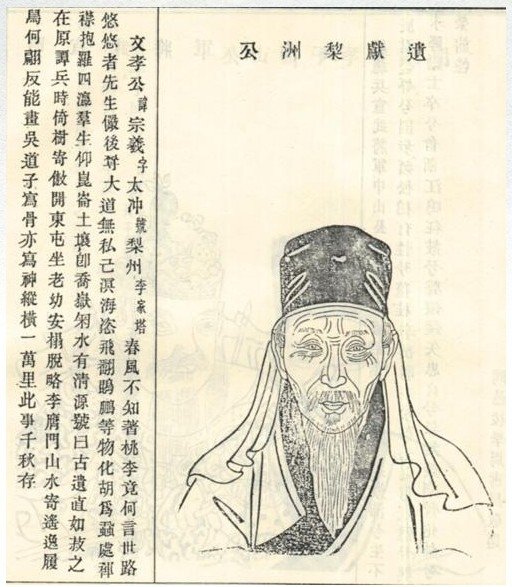 遺獻黎洲公
文孝公諱宗羲字太冲號梨州李家塔春風不知著桃李竟何言世路
悠悠者先生儼後尋大道無私己溟海恣飛翻鵾鵬等物化胡爲蝨處褌
襟抱羅四瀛羣生仰崑崙土壤卽喬嶽匊水有清源號曰古遺直如菽之
在原譚兵時倚樹寄傲開東屯坐老幼安榻脫略李膺門山水寄遙逸履
舄何翩反能畫吳道子寫骨亦寫神縱橫一萬里此事千秋存